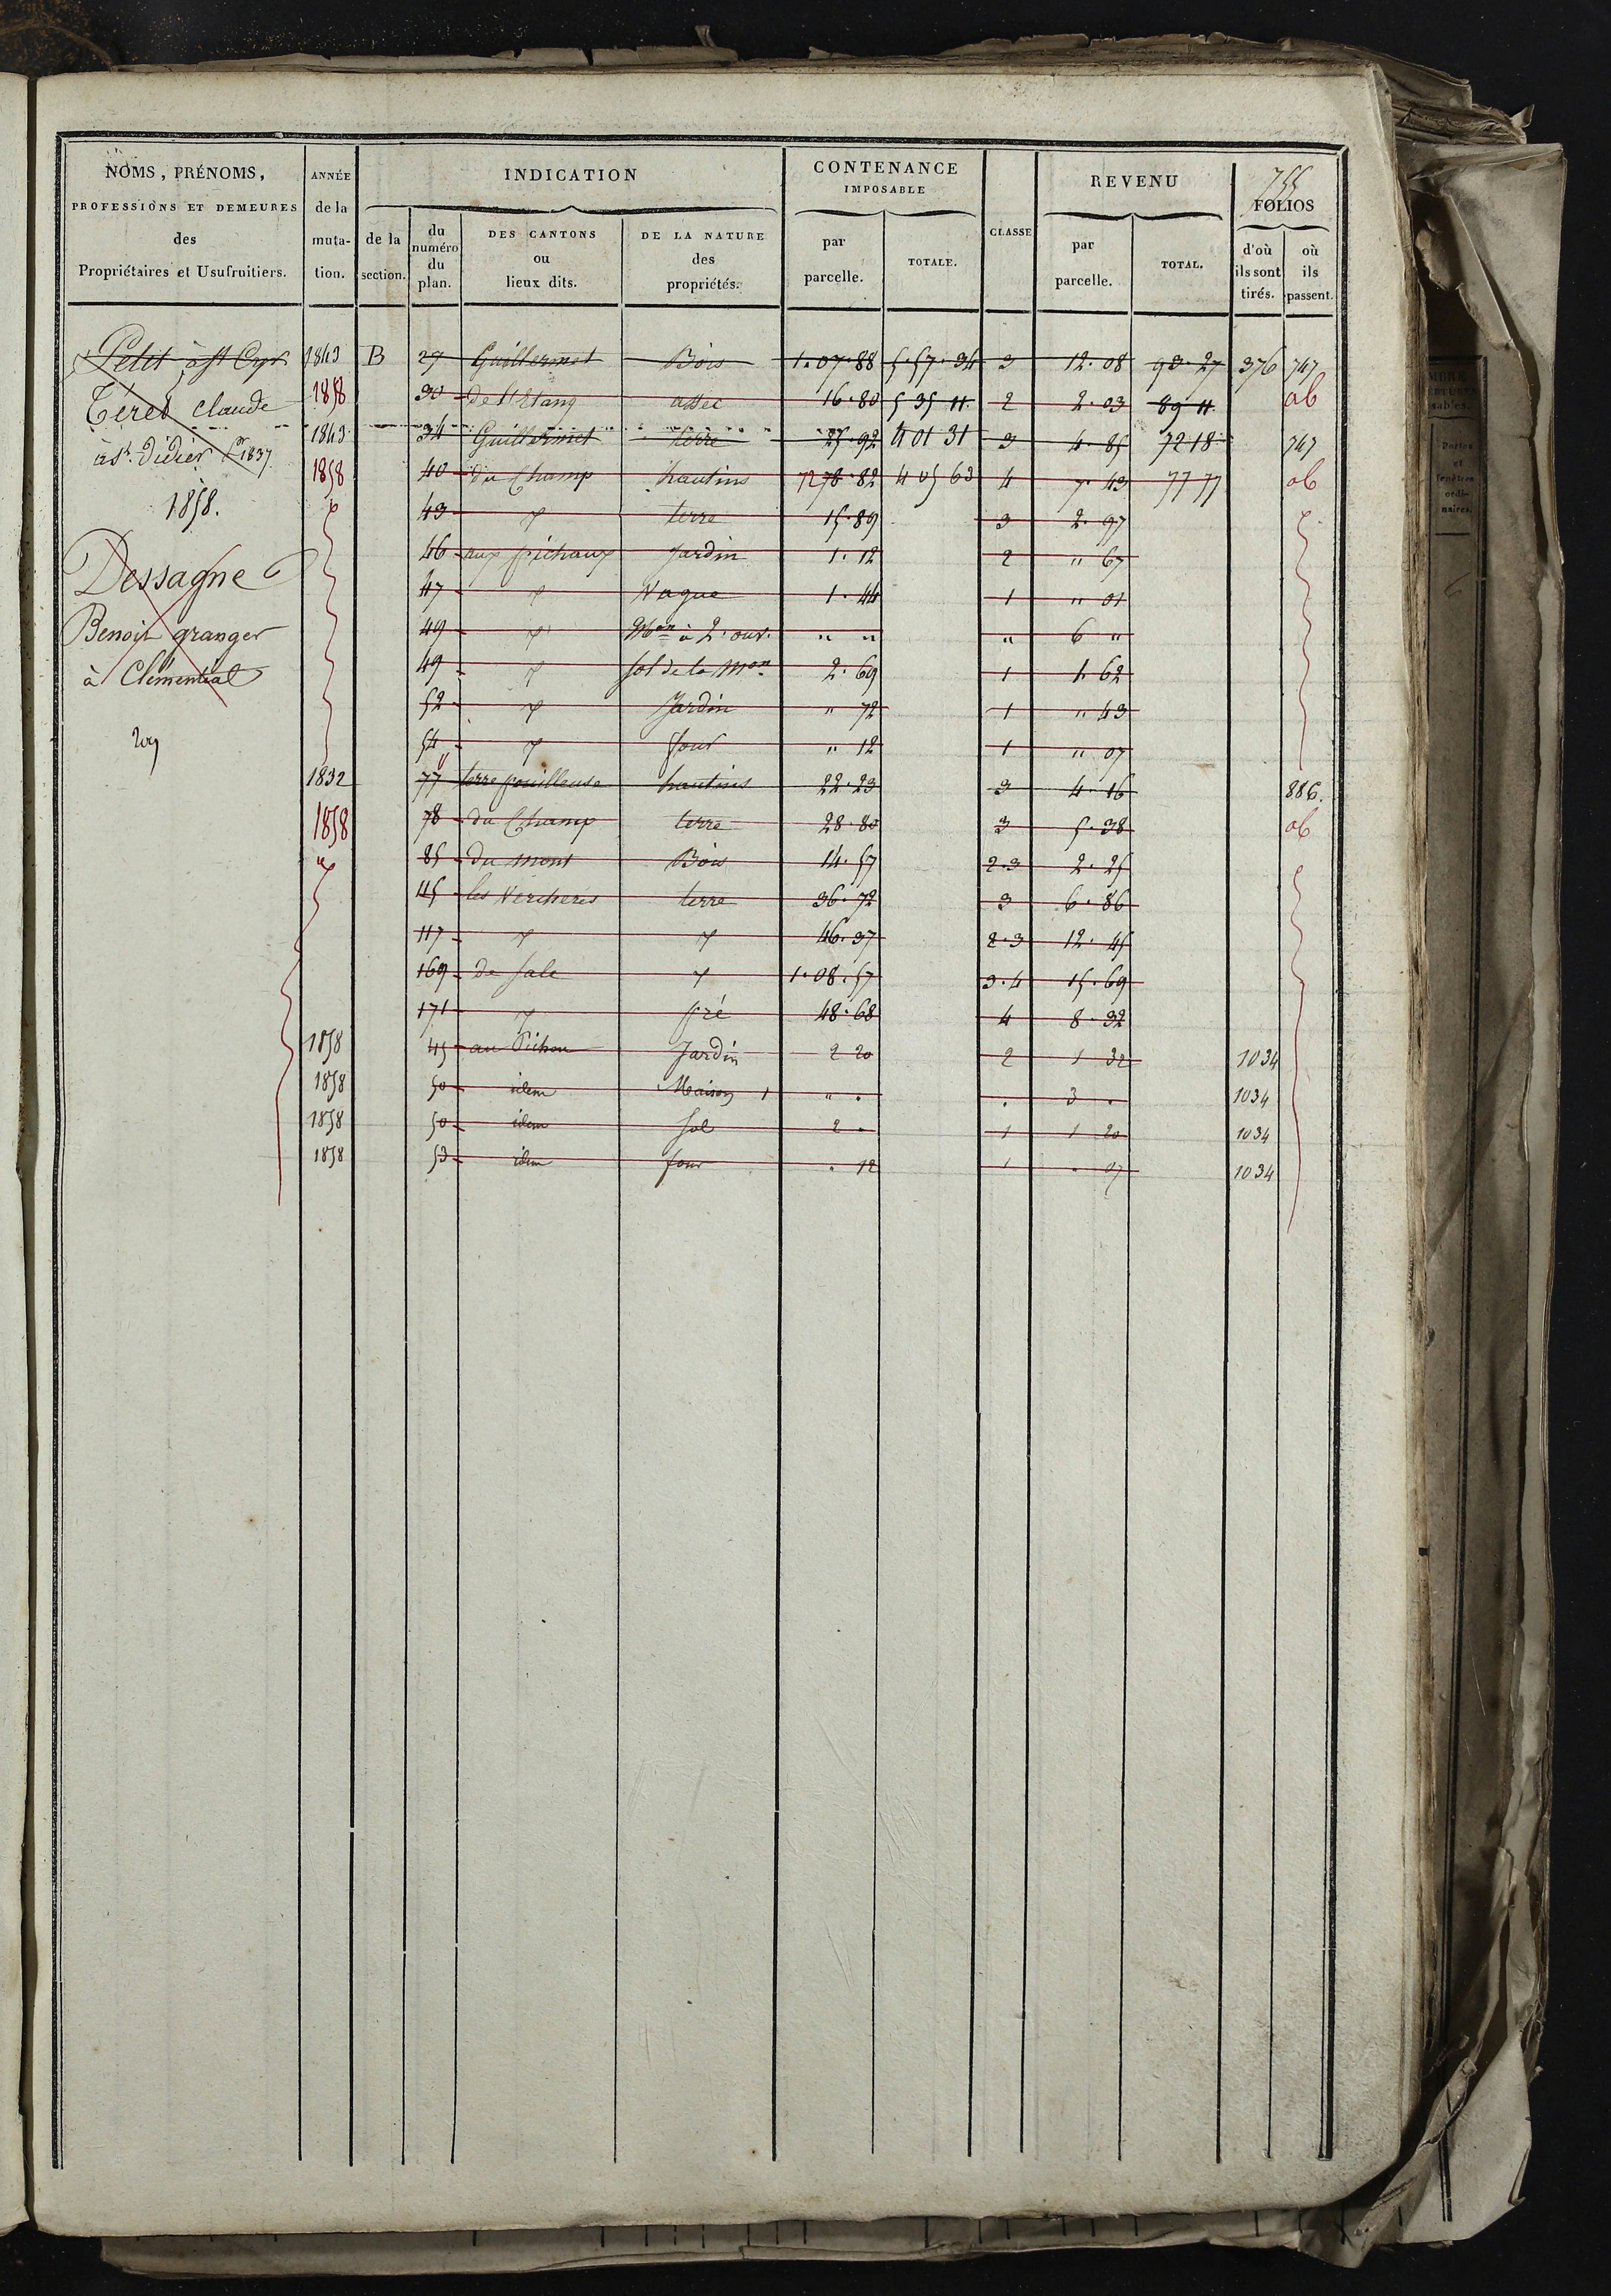 755
NOMS, PRÉNOMS,
PROFESSIONS ET DEMEURES
des
Propriétaires et Usufruitiers.
ANNÉE
de la
muta-
tion.
INDICATION
de la
section.
du
numéro
du
plan.
DES CANTONS
ou
lieux dits.
DE LA NATURE
des
propriétés.
CONTENANCE
IMPOSABLE
par
parcelle.
TOTALE.
CLASSE
REVENU
par
parcelle.
TOTAL.
FOLIOS
d'où
ils sont
tirés.
où
ils
passent.
Petit à st Cyr
Téred Claude
à st. Didier Pr 1837
1858.
Dessagne
Benoit granger
à Clémentiat
1843 B 29 Guillermet Bois 1.07.88 5.57.34 3 12.08 93.27 376 747
1858 30 de l'Etang assec 16.80 5 35 11 2 2.03 89 11 ab
1843 34 Guillermet terre 25.92 4 01 31 3 4.85 72 18 747
1858 40 du Champ hautins 78.82 4 05 63 4 7.43 77 77 ab
43 terre 15.89 3 2.97
46 aux pichaux Jardin 1.12 2 " 67
47 Vague 1.44 1 " 01
49 Mon à 2. ouv. " " " 6 "
49 sol de la Mon 2.69 1 1.62
52 Jardin " 72 1 " 43
54 four " 12 1 " 07
1832 77 terre pouilleuse hautins 22.23 3 4.16 886.
1858 78 du Champ terre 28.80 3 5.38 ab
85 du mont Bois 14.57 2.3 2.25
45 les Vercheres terre 36.72 3 6.86
117 46.37 2.3 12.45
169 de Sale 1.08.57 3.4 15.69
171 pré 48.68 4 8.32
1858 45 au Pichon Jardin 2 20 2 1 32 1034
1858 50 idem Maison 1 " . . 3 . 1034
1858 50 idem sol 2 . 1 1 20 1034
1858 53 idem four . 12 1 . 07 1034